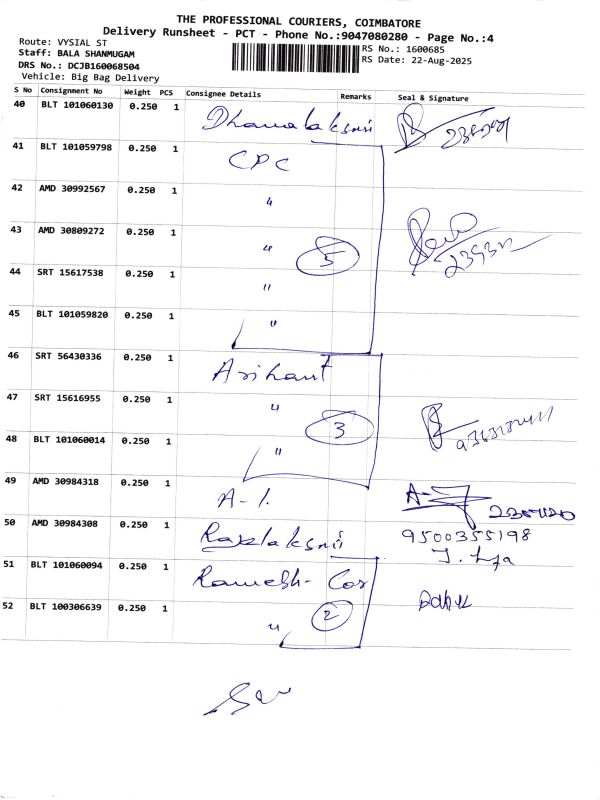 THE PROFESSIONAL COURIERS, COIMBATORE
Delivery Runsheet - PCT - Phone No.:9047080280 - Page No.:4
Route: VYSIAL ST
Staff: BALA SHANMUGAM
DRS No.: DCJB160068504
Vehicle: Big Bag Delivery
RS No.: 1600685
RS Date: 22-Aug-2025
S No Consignment No Weight PCS Consignee Details Remarks Seal & Signature
40 BLT 101060130 0.250 1 Dhanalaksmi
41 BLT 101059798 0.250 1 CPC
42 AMD 30992567 0.250 1 "
43 AMD 30809272 0.250 1 " 5
44 SRT 15617538 0.250 1 "
45 BLT 101059820 0.250 1 "
46 SRT 56430336 0.250 1 Arihant
47 SRT 15616955 0.250 1 " 3
48 BLT 101060014 0.250 1 "
49 AMD 30984318 0.250 1 A-1.
50 AMD 30984308 0.250 1 Rajalaksmi 9500355198
51 BLT 101060094 0.250 1 Ramesh- Cos
52 BLT 100306639 0.250 1 " 2